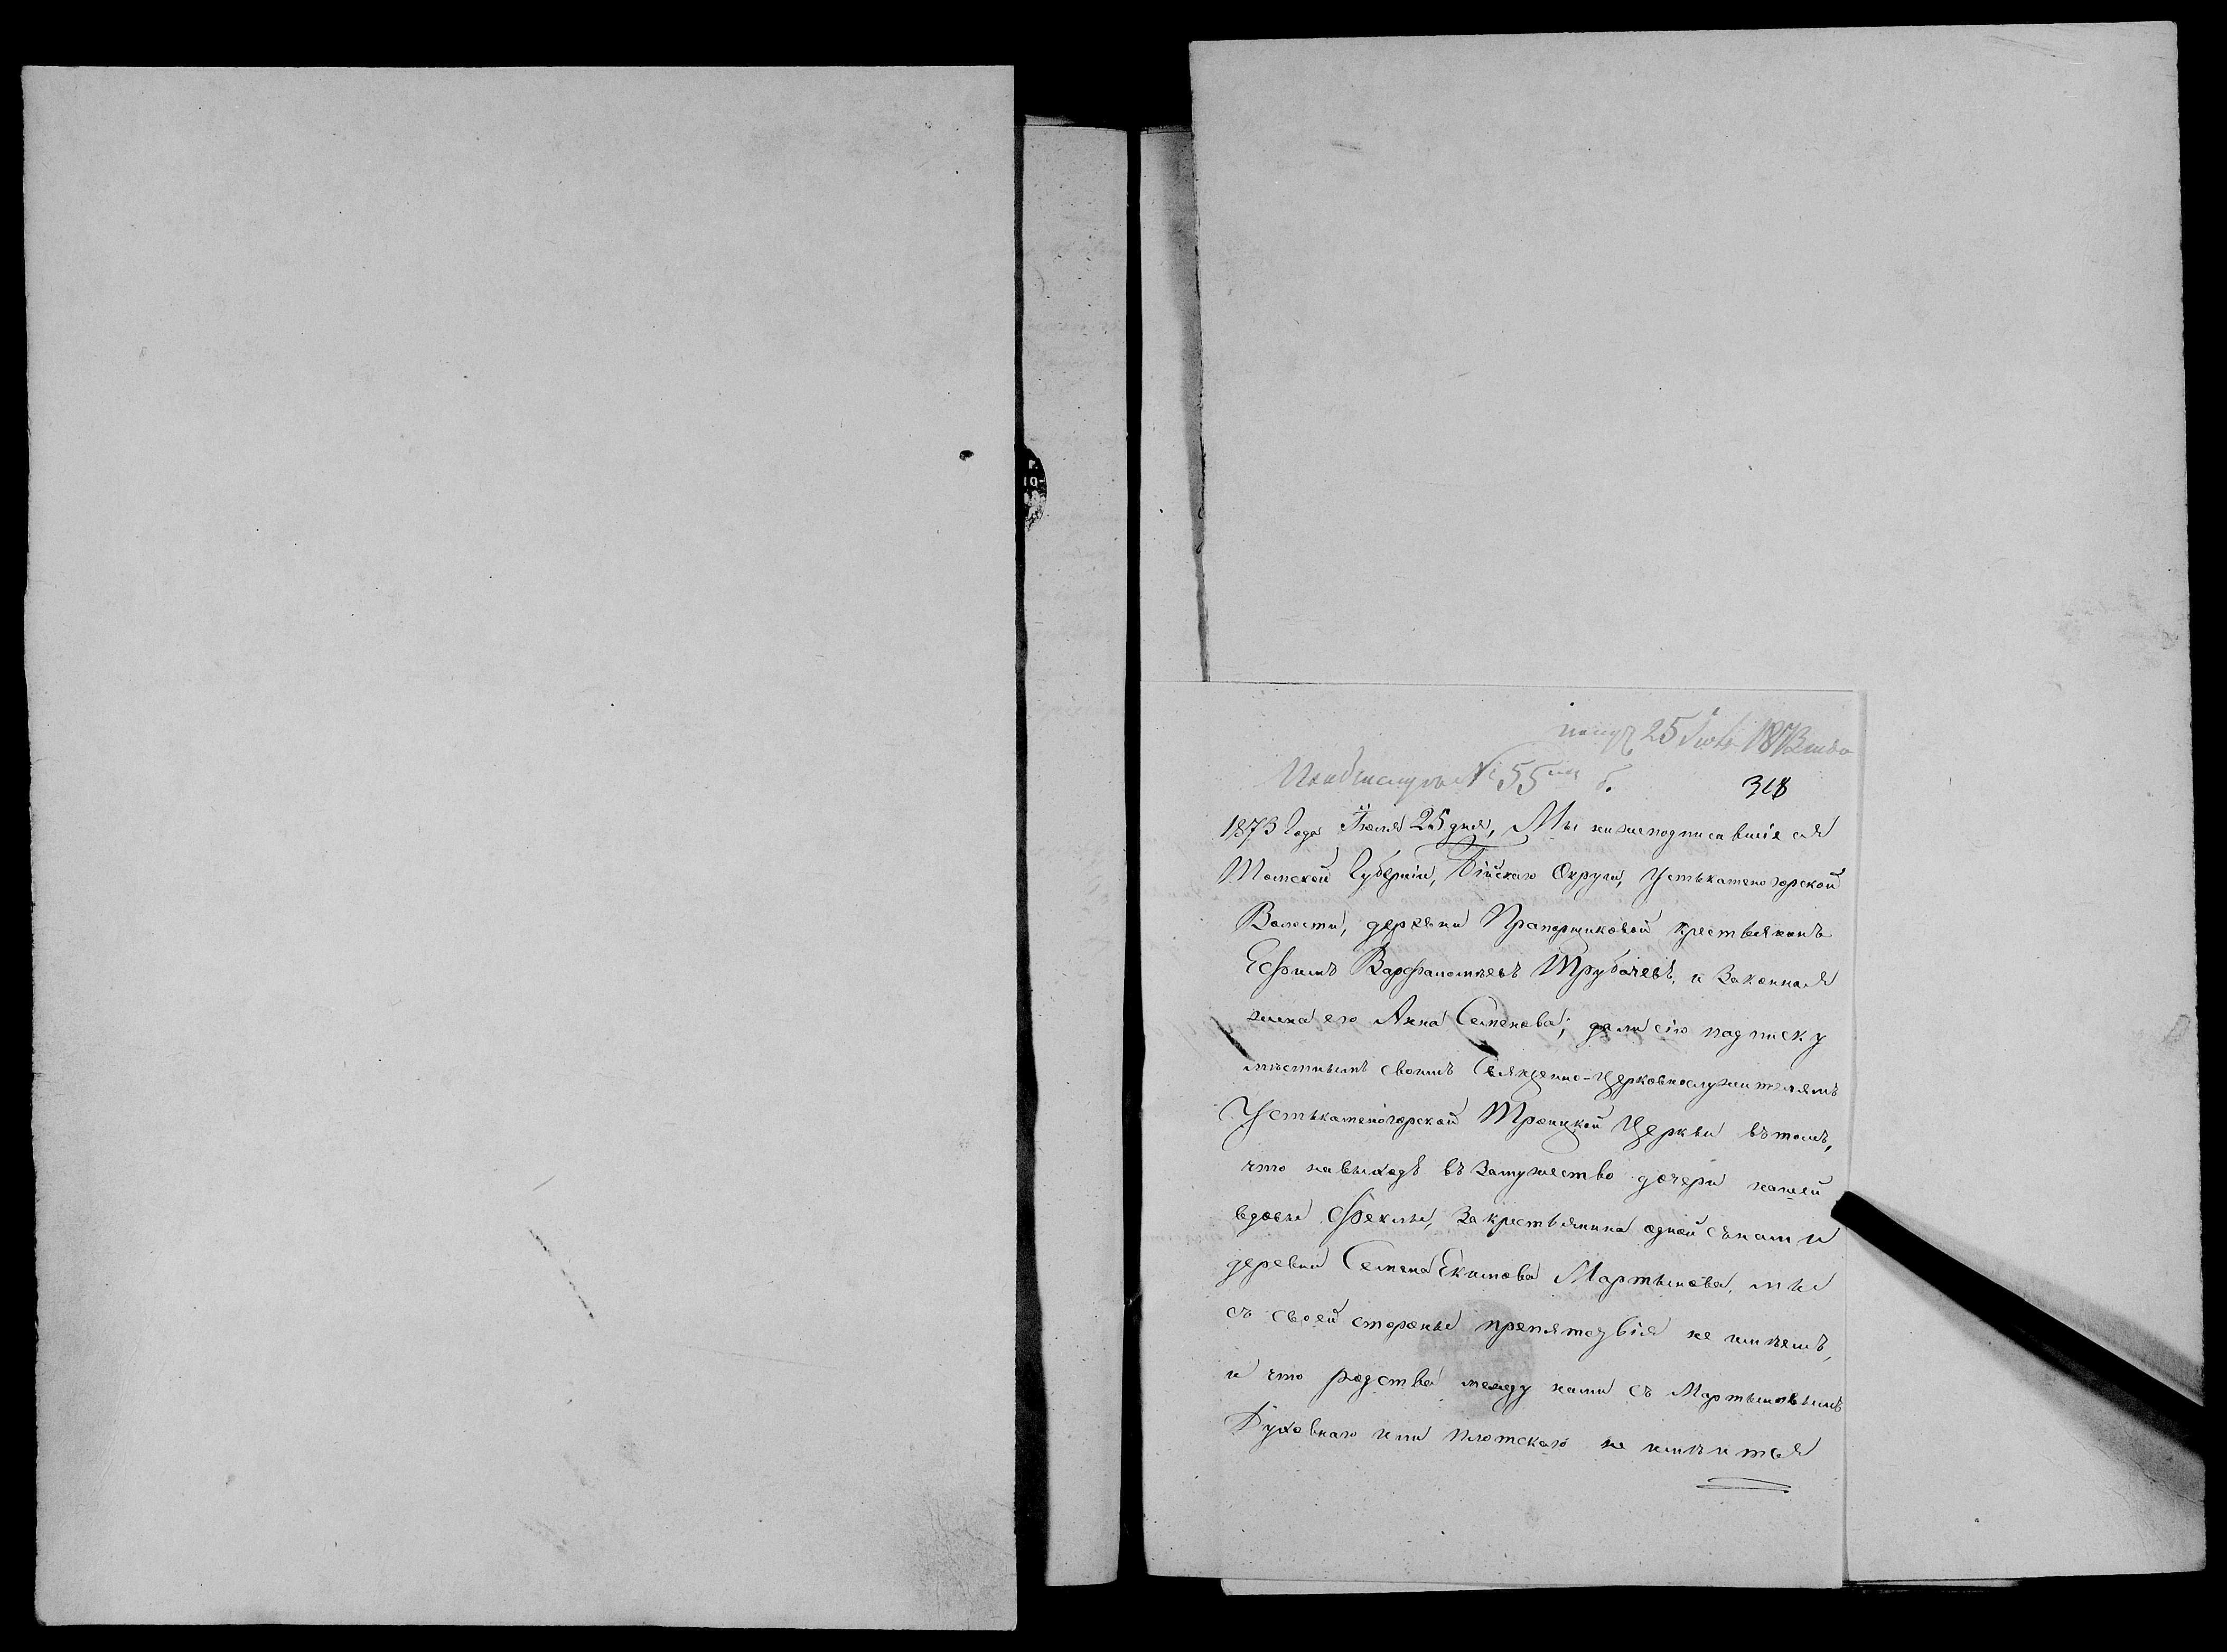 получ 25 Іюля 1873 года
№ 55
318
1873 Года Іюля 25 дня, Мы нижеподписавшіеся
Томской Губерніи, Бійскаго Округа, Устькаменогорской
Волости, деревни Прапорщиковой крестьянинъ
Ефимъ Варфаломѣевъ Трубачевъ, и законная
жена его Анна Семенова; дали сію подписку
мѣстнымъ своимъ Священно-церковнослужителямъ
Устькаменогорской Троицкой Церкви въ томъ,
что на выходъ въ замужество дочери нашей
вдовы Феклы, за крестьянина одной съ нами
деревни Семена Екимова Мартынова, мы
съ своей стороны препятствія не имѣемъ,
и что родства между нами съ Мартыновымъ
Духовнаго или плотскаго не имѣится